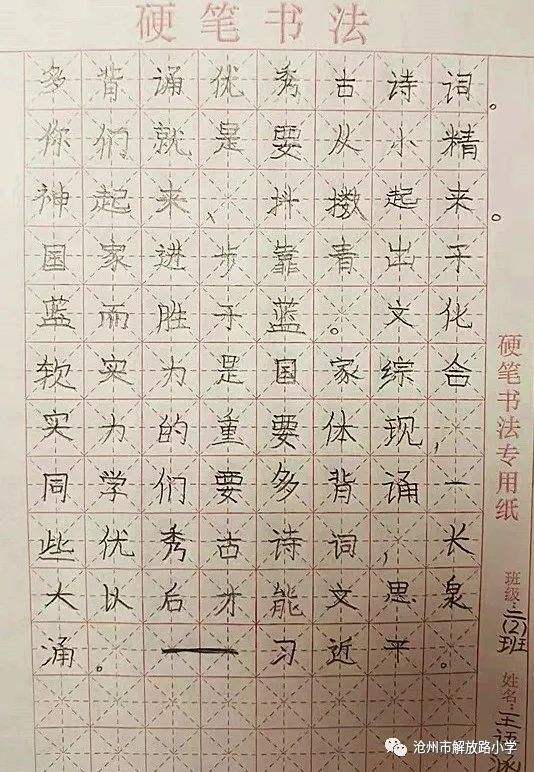 硬笔书法
多背诵优秀古诗词。
你们就是要从小精
神起来、抖擞起来。
国家进步靠青出于
蓝而胜于蓝。文化
软实力是国家综合
实力的重要体现,
同学们要多背诵一
些优秀古诗词,长
大以后才能文思泉
涌。——习近平。
硬笔书法专用纸
班级:二(2)班
姓名:王语
沧州市解放路小学